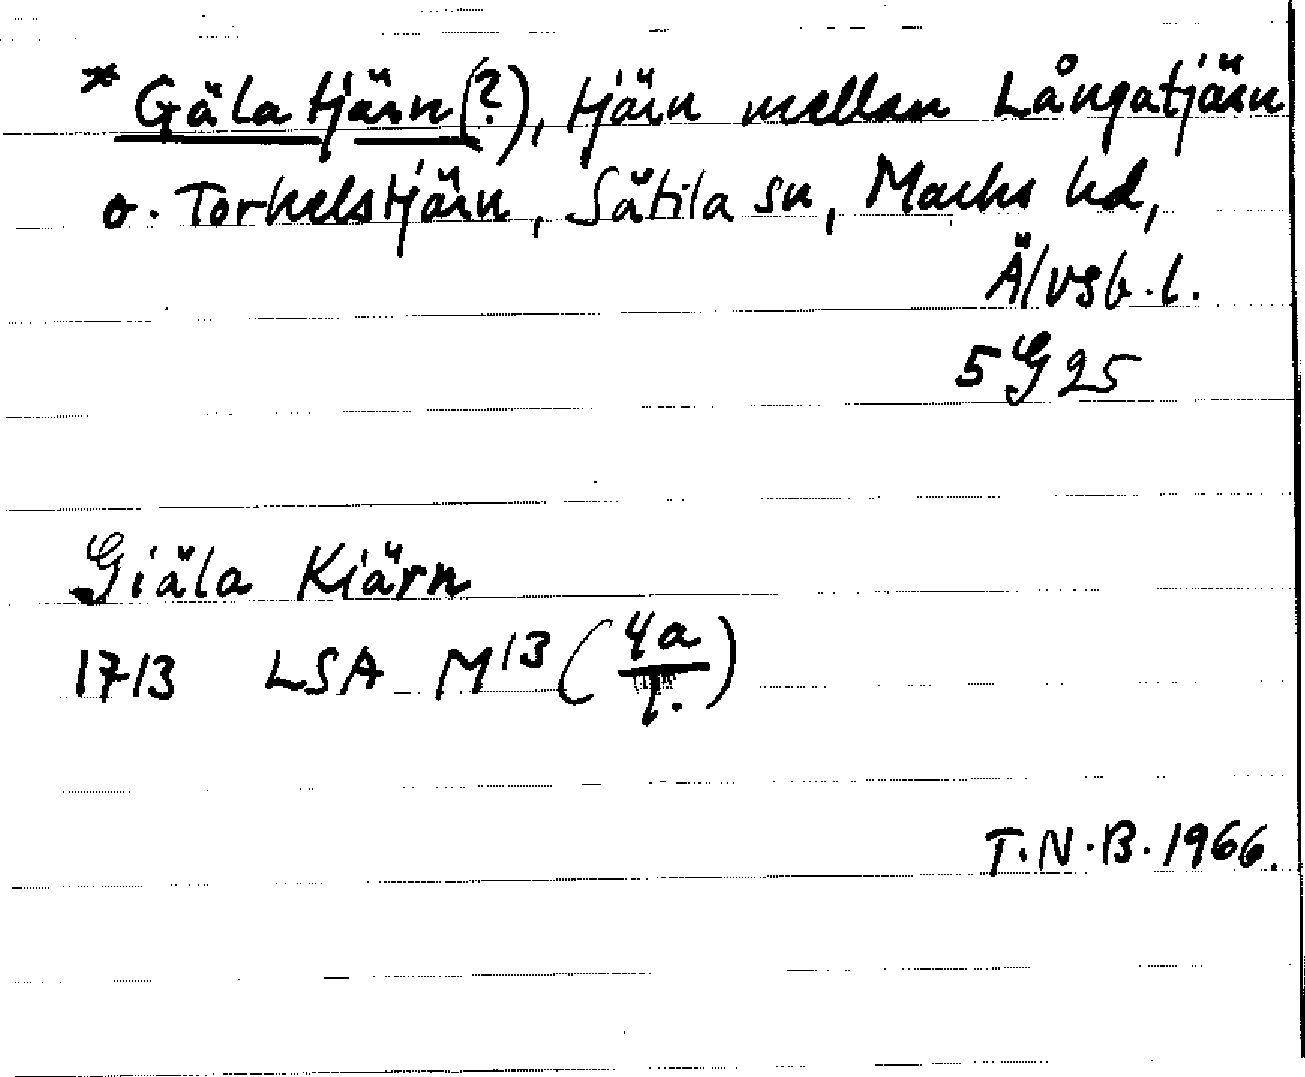 * Gälatjärn (?), tjärn mellan Långatjärn
o. Torkelstjärn, Sätila sn, Marks hd,
Älvsb. l.
5G 25
Giäla Kiärn
1713 LSA M 13 (4a/1.)
T.N.B. 1966.